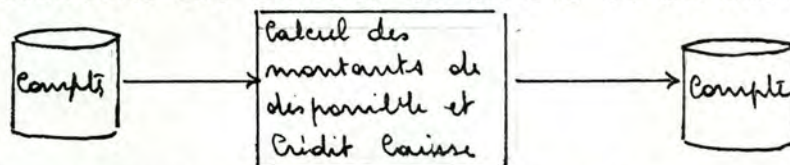 Compts
Calcul des
montants de
disponible et
Crédit Caisse
Compte